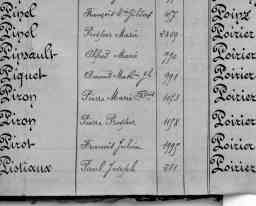 Pipel François 107 Poinz
Pipol Marie 2389 Poirier
Pipsault Alfred Marie 790 Poirier
Piquet 991 Poirier
Piron Pierre Marie Poirier
Piron Pierre Prosper 1178 Poirier
Pirot François Julien 1995 Poirier
Pistiaux Paul Joseph 251 Poirier